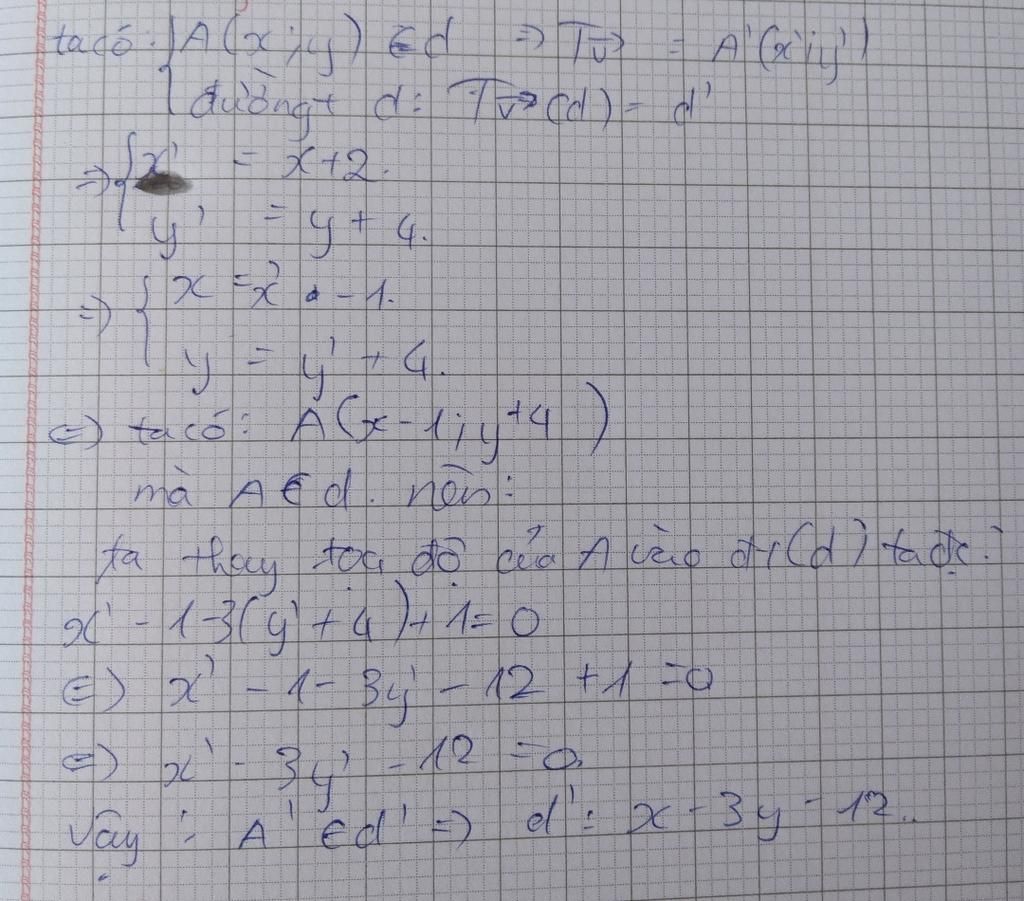 ta có: { A(x;y) ∈ d ⇒ Tv→ = A'(x';y')
đường t d: Tv→(d) = d'
⇒ { x' = x+2.
y' = y + 4.
⇒ { x = x' - 1.
y = y' + 4.
⇔ ta có: A(x-1; y+4)
mà A ∈ d. nên:
ta thay tọa độ của A vào đt(d) ta đc:
x' - 1 - 3(y' + 4) + 1 = 0
⇔ x' - 1 - 3y' - 12 + 1 = 0
⇔ x' - 3y' - 12 = 0.
Vậy: A' ∈ d' ⇒ d': x - 3y - 12..